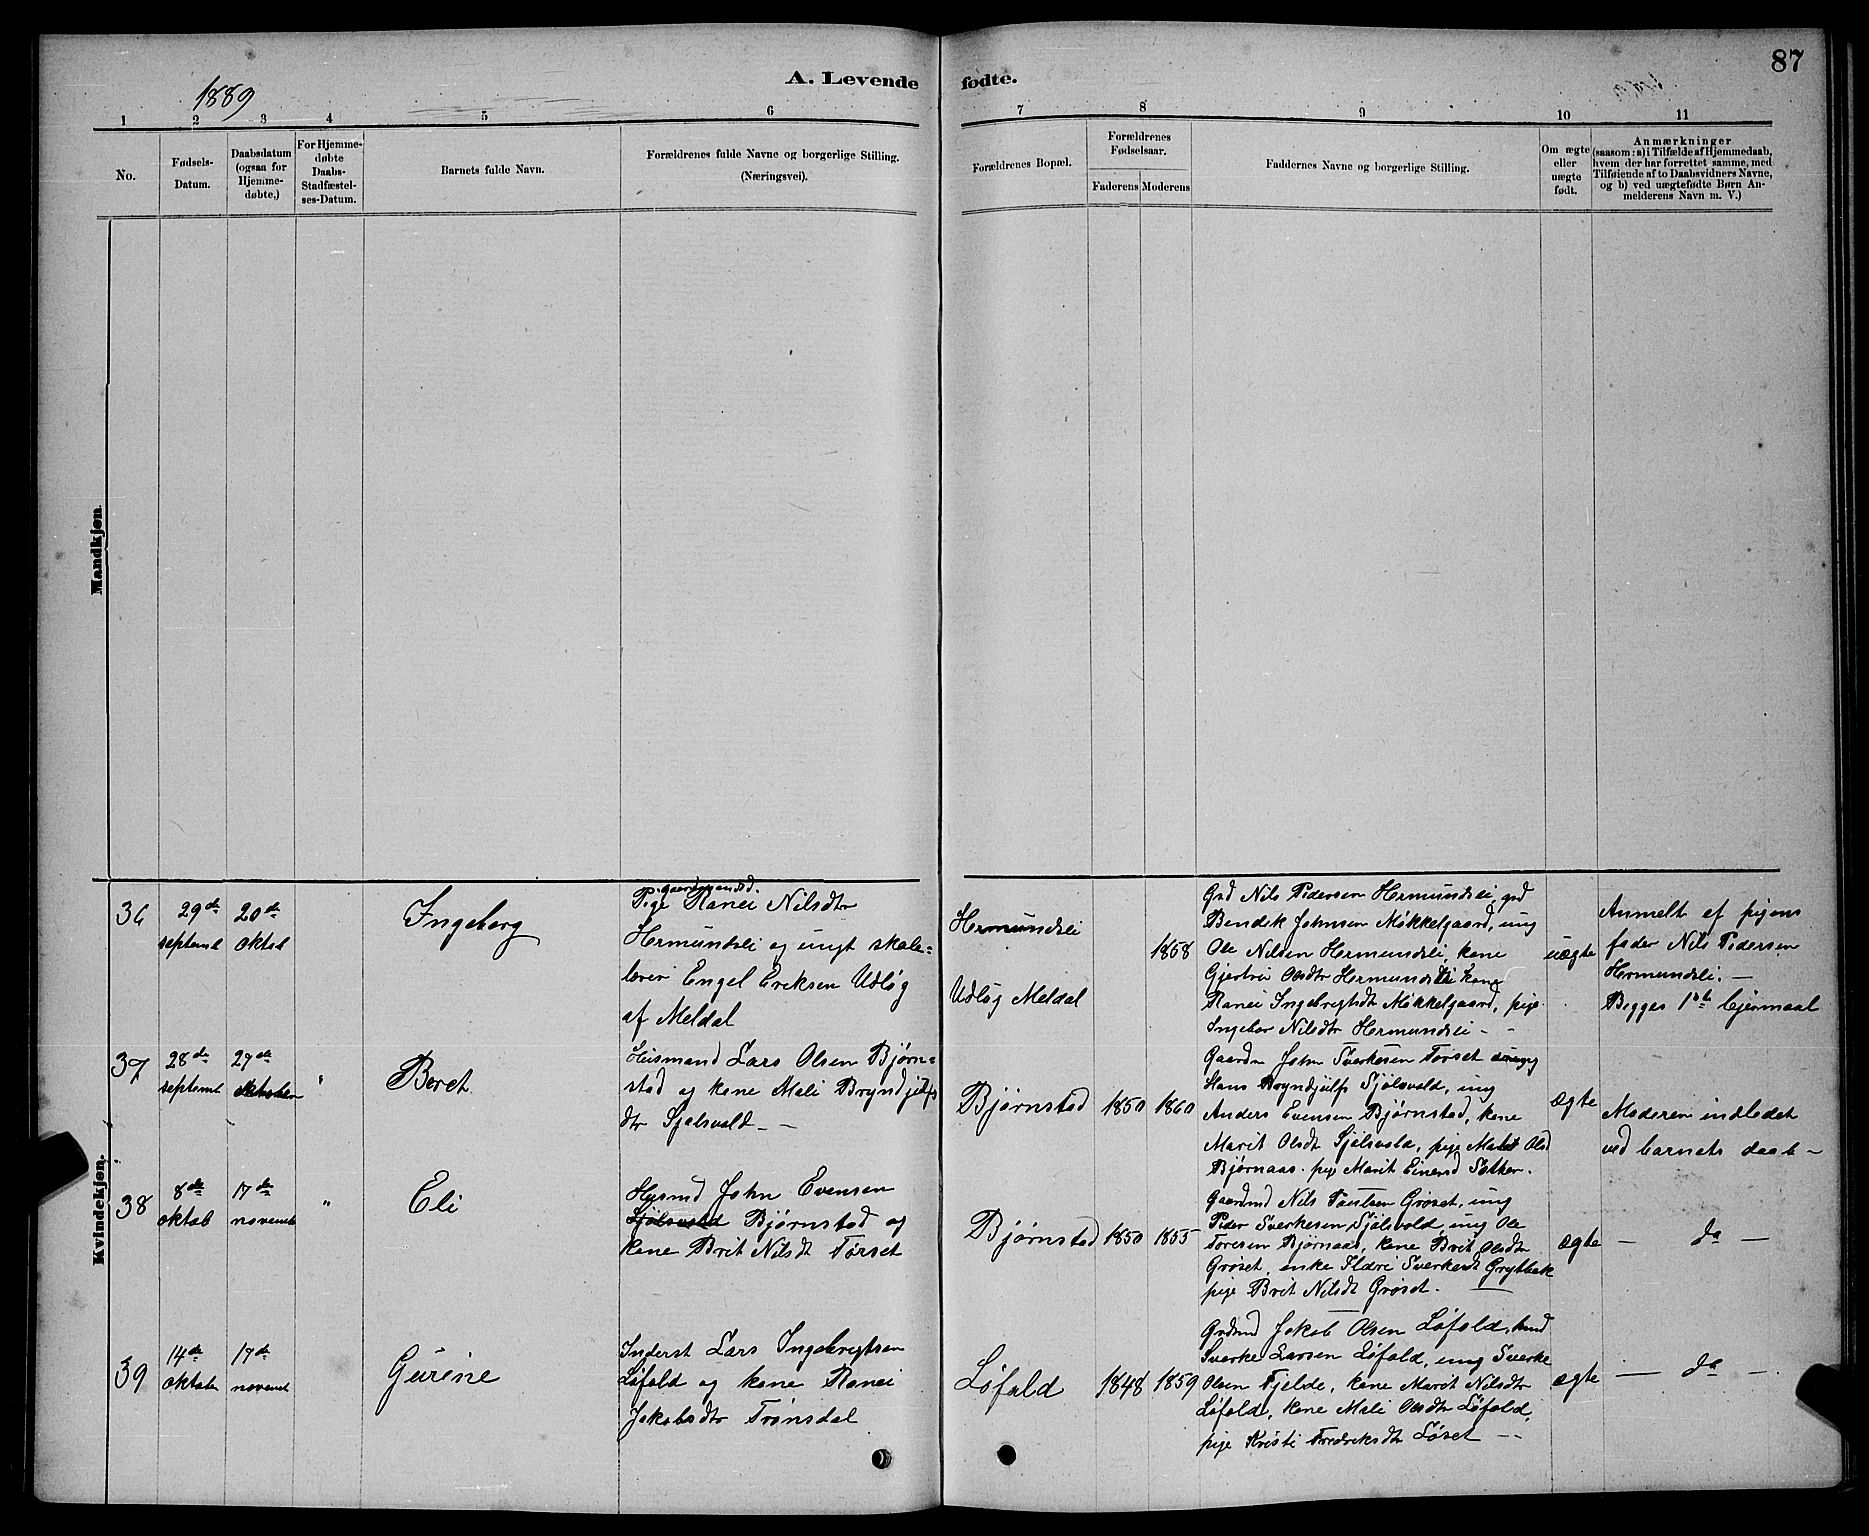 87
1889
A. Levende fødte.
1 2 3 4 5 6 7 8 9 10 11
No.
Fødsels-
Datum.
Daabsdatum
(ogsaa for
Hjemme-
døbte,)
For Hjemme-
døbte
Daabs-
Stadfæstel-
ses-Datum.
Barnets fulde Navn.
Forældrenes fulde Navne og borgerlige Stilling.
(Næringsvei).
Forældrenes Bopæl.
Forældrenes
Fødselsaar.
Faderens Moderens
Faddernes Navne og borgerlige Stilling.
Om ægte
eller
uægte
født.
Anmærkninger
(saasom: a) i Tilfælde af Hjemmedaab,
hvem der har forrettet samme, med
Tilføiende af to Daabsvidners Navne,
og b) ved uægtefødte Børn An-
melderens Navn m. V.)
Mandkjøn
Kvindekjøn.
36
29de
septemb
20de
oktob
Ingeborg
gaardmandsd.
Pige Ranei Nilsdtr
Hermundsli og ungt skole-
lærer Engel Eriksen Udløg
af Meldal
Hermundsli
Udløg Meldal
1858
Grd Nils Pedersen Hermundsli, grd
Bendik Johnsen Møkkelgaard, ung
Ole Nilsen Hermundsli, kone
Gjertru Olsdtr Hermundsli kone
Ranei Ingebrigtsdt Møkkelgaard, pige
Ingebor Nilsdtr Hermundsli -
uægte
Anmelt af pigens
fader Nils Pedersen
Hermundsli. -
Begges 1ste lejermaal
37
28de
septemb
27de
oktober
"
Beret
Husmand Lars Olsen Bjørn-
stad og kone Mali Bryndjulfs
dtr Sjølsvold -
Bjørnstad
1850
1860
Gaardm John Sverkesen Torset ung
Hans Bryndjulfs Sjølsvold, ung
Anders Evensen Bjørnstad, kone
Marit Olsdt Sjølsvold, pige Marit Olsd
Bjørnaas. pige Marit Einersd Sæther.
ægte
Moderen indledet
ved barnets daab -
38
8de
oktob
17de
novemb
"
Eli
Husmd John Evensen
Sjølsvold Bjørnstad og
kone Brit Nilsdt Tørset
Bjørnstad
1850
1855
Gaardmd Nils Paulsen Grøset, ung
Peder Sverkesen Sjølsvold, ung Ole
Toresen Bjørnaas, kone Brit Olsdtr
Grøset, enke Ildri Sverkesdt Grytbak
pige Brit Nilsdt Grøset.
ægte
- do -
39
14de
oktober
17de
novemb
Gurine
Inderst Lars Ingebrigtsen
Løfald og kone Ranei
Jakobsdtr Trønsdal
Løfald
1848
1859
Grdmd Jakob Olsen Løfald,
Sverke Larsen Løfald, ung Sverke
Olsen Fjelde, kone Marit Nilsdtr
Løfald, kone Mali Olsdtr Løfald,
pige Kristi Fredriksdtr Løset -
ægte
- do -